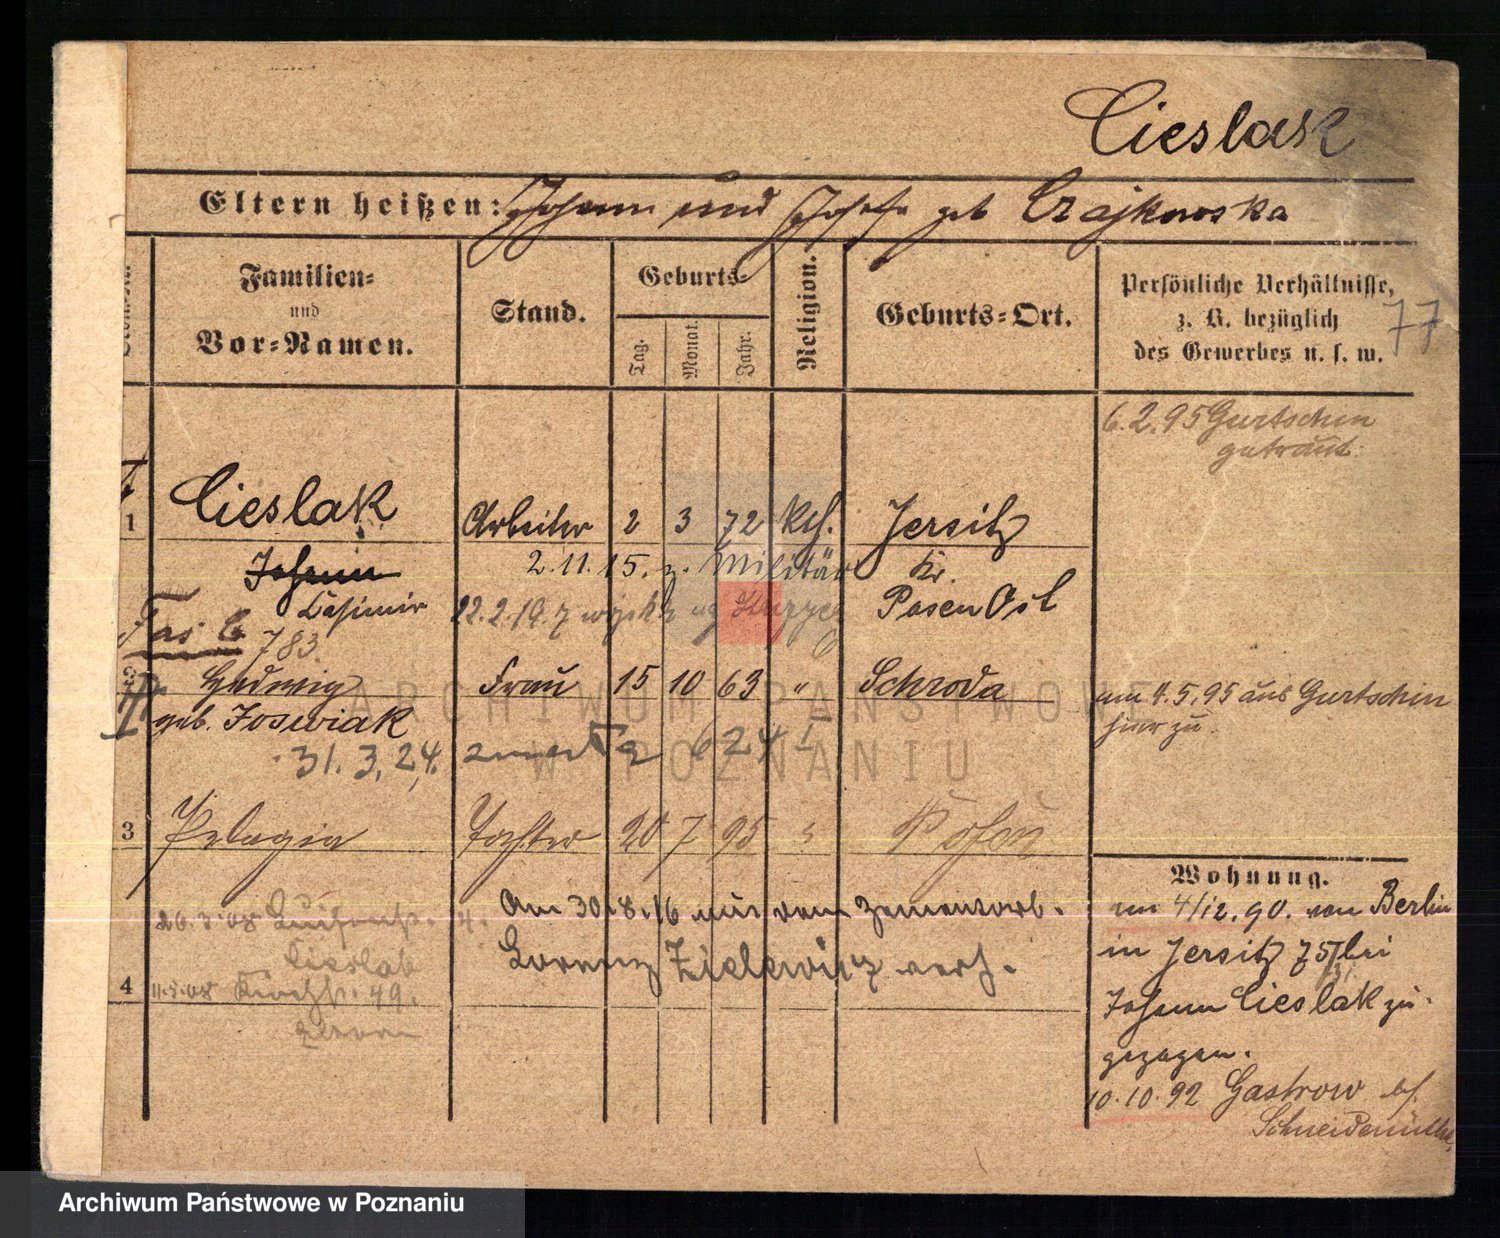 Cieslak
Eltern heißen: Johann und Josefa geb Czajkowska
Familien= und Vor=Namen.
Stand.
Geburts=
Tag.
Monat.
Jahr.
Religion.
Geburts=Ort.
Persönliche Verhältnisse, z. B. bezüglich des Gewerbes u. s. w.
77
6.2.95 Gurtschin
getraut.
1 Cieslak Arbeiter 2 3 72 kth. Jersitz
Johann 2.11.15. z. Militär Kr.
Casimir 22.2.19. z Posen Ost
783.
2 Hedwig Frau 15 10 63 " Schroda
geb. Joswiak
am 4.5.95 aus Gurtschin
hier zu
31.3.24.
ARCHIWUM PAŃSTWOWE
W POZNANIU
3 Pelagia Tochter 20 7 95 " Posen
Wohnung.
am 4/12. 90. von Berlin
in Jersitz 75/ bei
Johann Cieslak zu-
gezogen.
10.10.92 Gastrow bei
Schneidemühl
20.3.08 4.
Cieslak
4 11.5.08 Kirchstr. 49.
Am 30.8.16 mit dem Zementarb.
Lorenz verh.
Archiwum Państwowe w Poznaniu